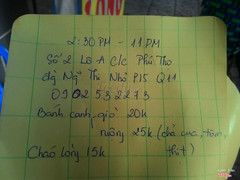 2:30PM - 11PM
Số 2 Lô A C/c Phú Thọ
đg Ngỹ Thị Nhỏ P15 Q11
0902532273
Bánh canh giò 20k
ruông 25k (chả cua, tôm,
thịt)
Cháo lòng 15k